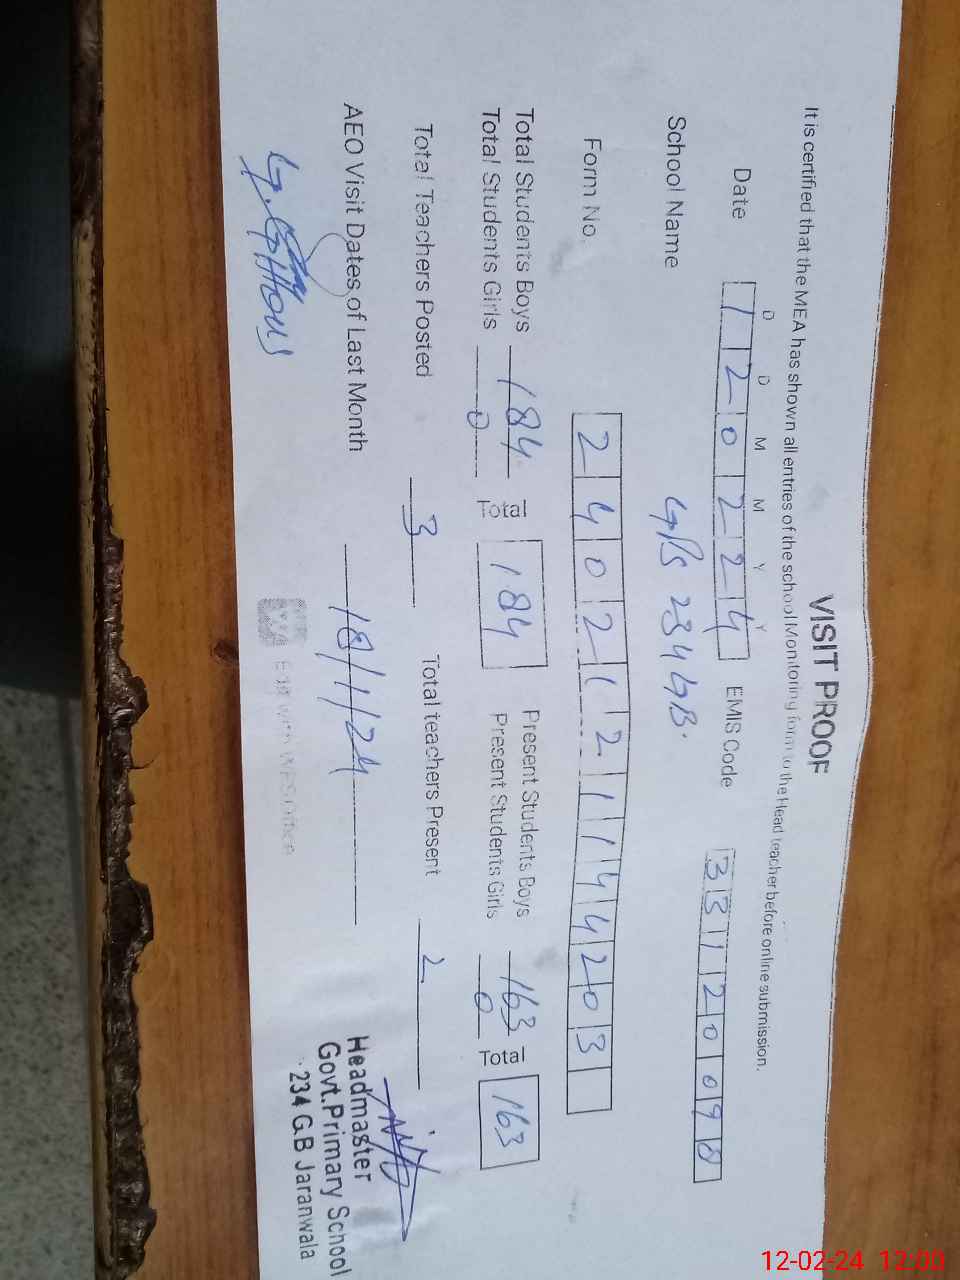 VISIT PROOF
It is certified that the MEA has shown all entries of the school Monitoring form to the Head teacher before online submission.
D D M M Y Y
Date 1 2 0 2 2 4 EMIS Code 3 3 1 2 0 0 9 8
School Name GPS 234 GB.
Form No. 2 4 0 2 1 2 1 1 4 4 2 0 3
Total Students Boys 184 Total 184 Present Students Boys 163 Total 163
Total Students Girls 0 Present Students Girls 0
Total Teachers Posted 3 Total teachers Present 2
AEO Visit Dates of Last Month 18/1/24
G. GHOUS
Headmaster
Govt.Primary School
234 G.B Jaranwala
12-02-24 12:00